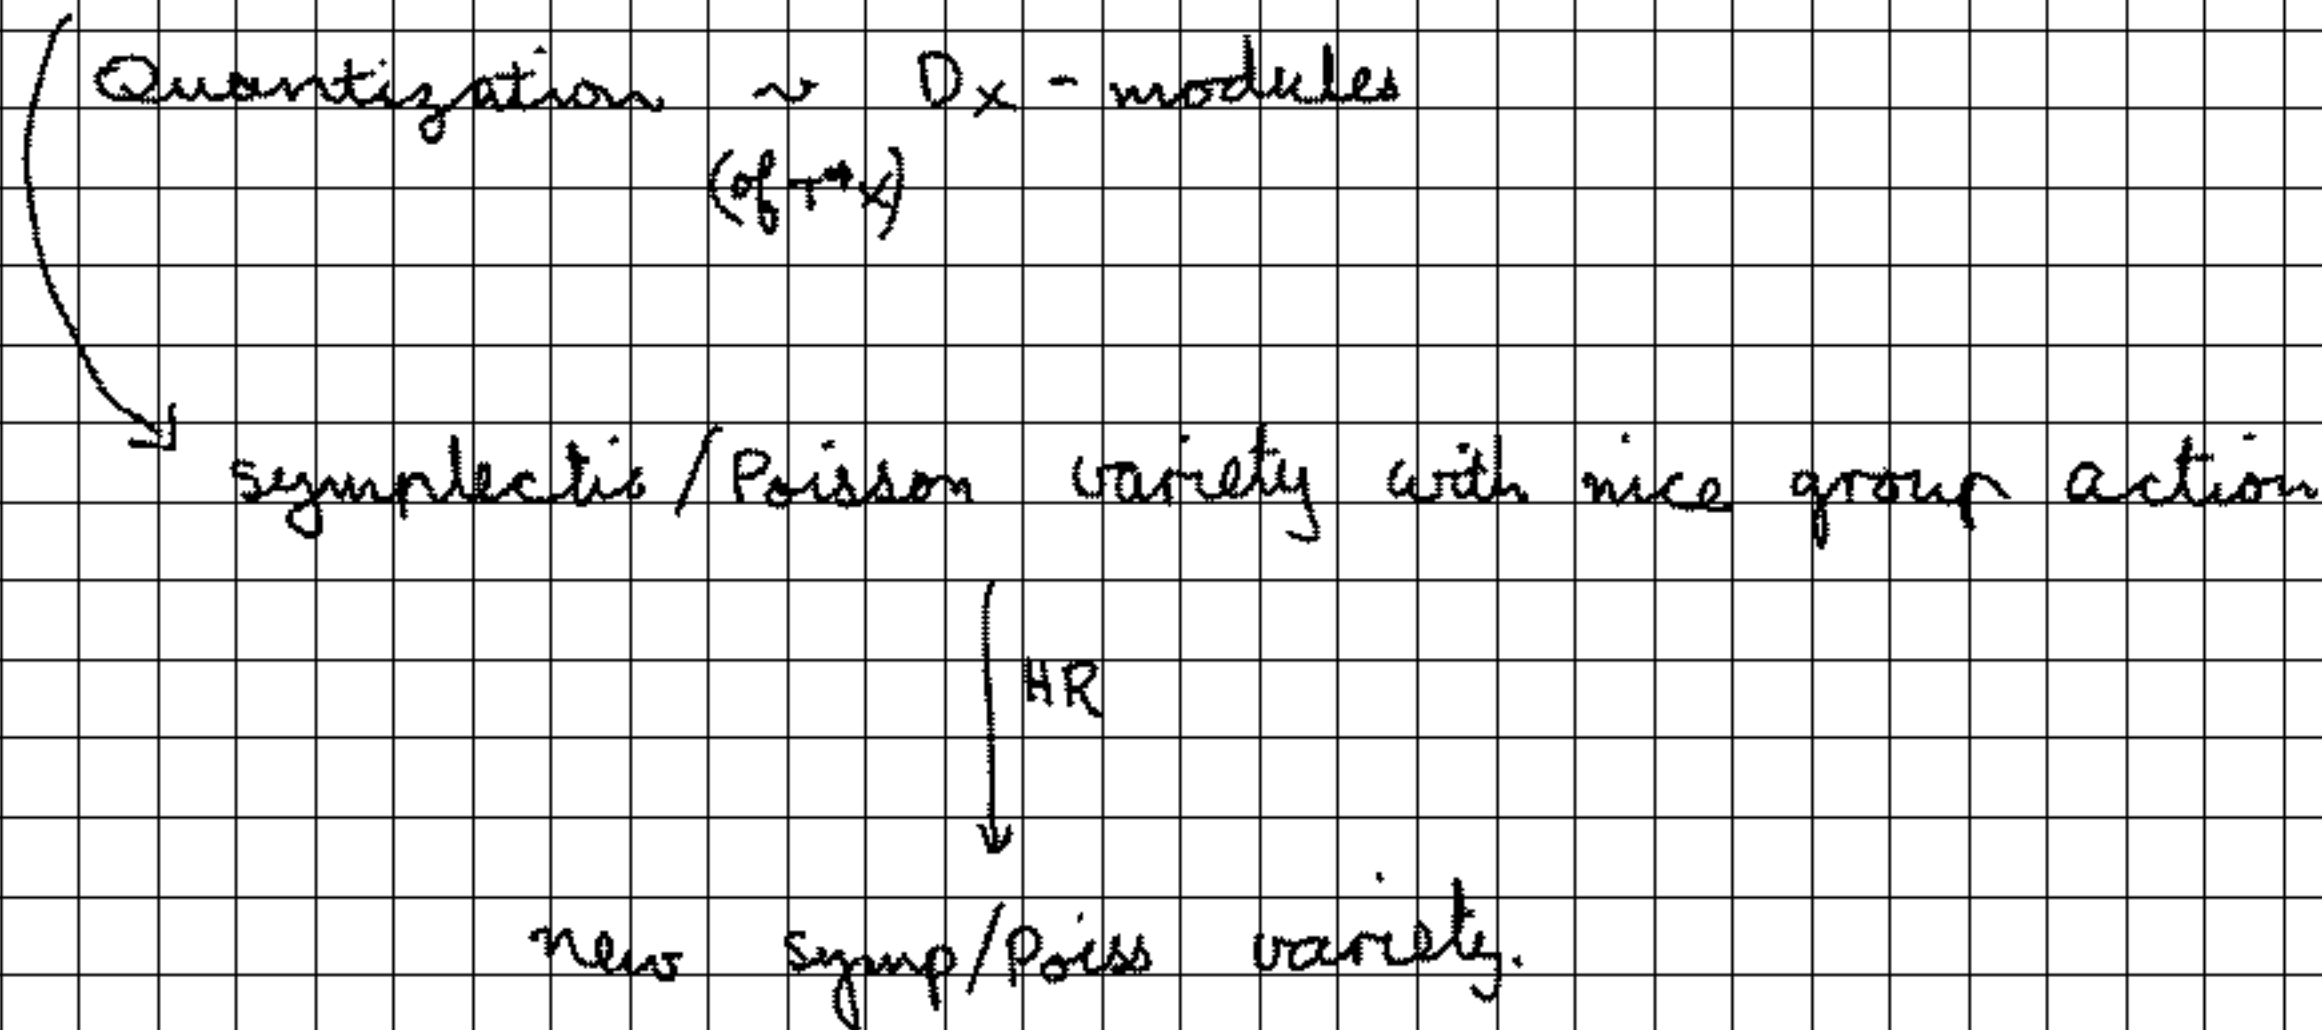 Quantization ~ D_X - modules
(of T*X)
symplectic/Poisson variety with nice group action
HR
New symp/Poiss variety.